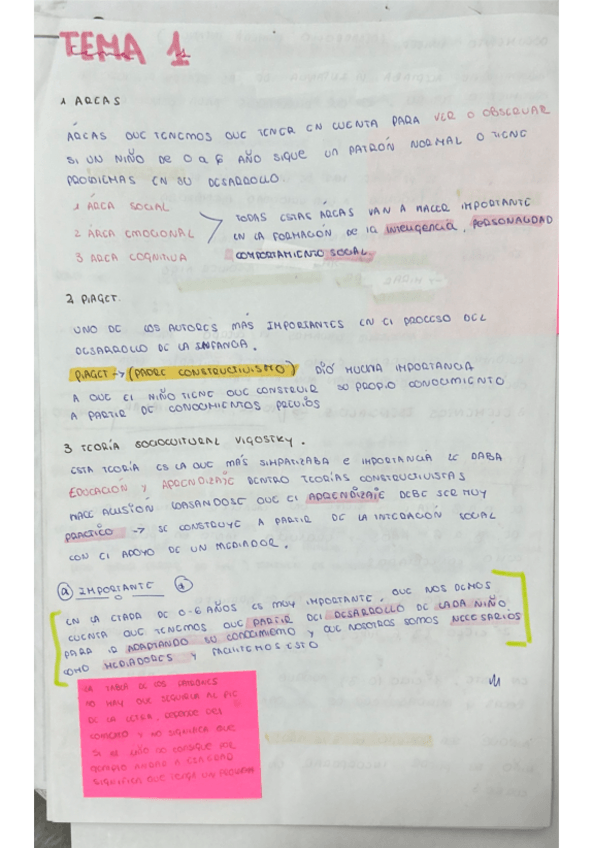 TEMA 1
1 AREAS
ÁREAS QUE TENEMOS QUE TENER EN CUENTA PARA VER O OBSERVAR
SI UN NIÑO DE 0 a 6 AÑO SIGUE UN PATRÓN NORMAL O TIENE
PROBLEMAS EN SU DESARROLLO.
1 ÁREA SOCIAL
2 ÁREA EMOCIONAL
3 AREA COGNITIVA
TODAS ESTAS ÁREAS VAN A HACER IMPORTANTE
EN LA FORMACIÓN DE la INTELIGENCIA, PERSONALIDAD
COMPORTAMIENTO SOCIAL
2 PIAGET.
UNO DE LOS AUTORES MÁS IMPORTANTES EN El PROCESO DEL
DESARROLLO DE LA INFANCIA.
PIAGET → (PADRE CONSTRUCTIVISMO) DIÓ MUCHA IMPORTANCIA
A QUE El NIÑO TIENE QUE CONSTRUIR SU PROPIO CONOCIMIENTO
A PARTIR DE CONOCIMIENTOS PREVIOS
3 TEORÍA SOCIOCULTURAL VIGOSTKY.
ESTA TEORÍA ES LA QUE MÁS SIMPATIZABA e IMPORTANCIA LE DABA
EDUCACIÓN Y APRENDIZAJE DENTRO TEORÍAS CONSTRUCTIVISTAS
HACE ALUSIÓN BASANDOSE QUE El APRENDIZAJE DEBE SER MUY
PRACTICO → SE CONSTRUYE A PARTIR DE LA INTERACIÓN SOCIAL
CON El APOYO DE UN MEDIADOR.
a IMPORTANTE
EN LA ETADA DE 0-6 AÑOS ES MUY IMPORTANTE, QUE NOS DEMOS
CUENTA QUE TENEMOS QUE PARTIR DEl DESARROLLO DE CADA NIÑO
PARA IR ADAPTANDO SU CONOCIMIENTO Y QUE NOSOTROS SOMOS NECESARIOS
COMO MEDIADORES Y FACILITEMOS ESTO
LA TABLA DE LOS PATRONES
NO HAY QUE SEGUIRLA AL PIE
DE LA LETRA, DEPENDE DEl
CONTEXTO Y NO SIGNIFICA QUE
SI EL NIÑO NO CONSIGUE POR
EJEMPLO ANDAR A ESA EDAD
SIGNIFICA QUE TENGA UN PROBLEMA